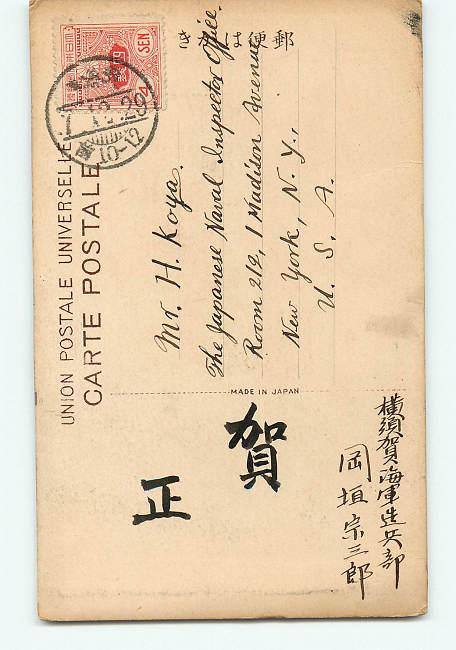 郵便はかき
4 SEN
UNION POSTALE UNIVERSELLE
CARTE POSTALE
Mr. H. Koya.
The Japanese Naval Inspector Office.
Room 212, 1 Madison Avenue
New York, N. Y.,
U. S. A.
MADE IN JAPAN
賀
正
横須賀海軍造兵部
岡垣宗三郎